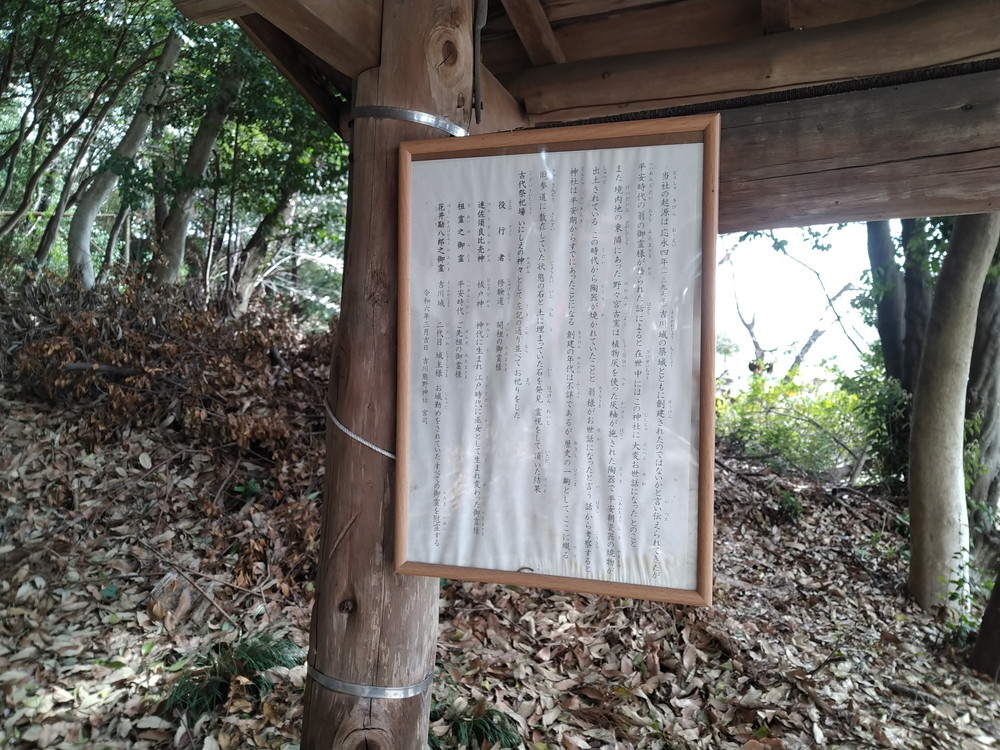 当社の起源は応永四年(一三九七年)吉川城の築城とともに創建されたのではないかと言い伝えられていたが
平安時代の翁の御霊様が降られた話によると在世中にはこの神社に大変お世話になったとのこと
また境内地の東隣にあった野々宮古窯は植物灰を使った灰釉が施された陶器で平安朝瓷器の焼物が
出土されている この時代から陶器が焼かれていたことと 翁様がお世話になったと言う話から考察すると
神社は平安期からすでにあったことになる 創建の年代は不詳であるが 歴史の一齣として、ここに綴る
旧参道に散在していた状態の石と土に埋まっていた石を発見 霊視をして頂いた結果
古代祭祀場 いにしえの神々として左記の通り並べてお祀りをした
役行者 修験道 開祖の御霊様
速佐須良比売神 祓戸神 神代に生まれ 江戸時代に巫女として生まれ変わった御霊様
祖霊之御霊 平安時代 ご先祖の御霊様
花井勘八郎之御霊 吉川城 二代目 城主様 お城勤めをされていたすべての御霊を慰霊する
令和六年三月吉日 吉川熊野神社 宮司